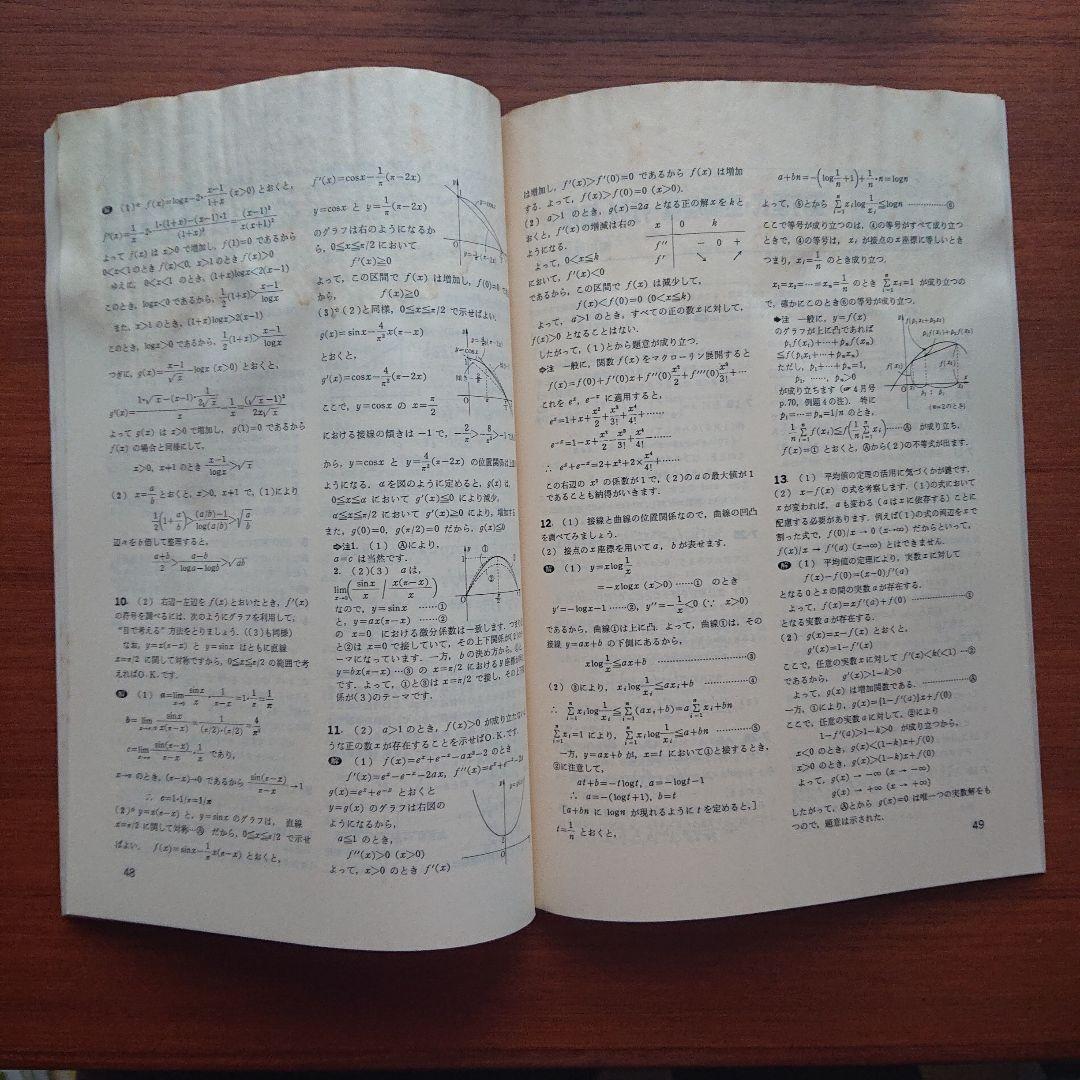 解 (1)° f(x)=logx-2・(x-1)/(1+x) (x>0) とおくと,
f'(x)=1/x-2・{1・(1+x)-(x-1)・1}/(1+x)²=(x-1)²/x(x+1)²
よって f(x) は x>0 で増加し, f(1)=0 であるから
0<x<1 のとき f(x)<0, x>1 のとき f(x)>0
ゆえに, 0<x<1 のとき, (1+x)logx<2(x-1)
このとき, logx<0 であるから, 1/2(1+x)>(x-1)/logx
また, x>1 のとき, (1+x)logx>2(x-1)
このとき, logx>0 であるから, 1/2(1+x)>(x-1)/logx
つぎに, g(x)=(x-1)/√x-logx (x>0) とおくと,
g'(x)={1・√x-(x-1)・1/2√x}/x-1/x=(√x-1)²/2x√x
よって g(x) は x>0 で増加し, g(1)=0 であるから
f(x) の場合と同様にして,
x>0, x≠1 のとき (x-1)/logx>√x
(2) x=a/b とおくと, x>0, x≠1 で, (1)により
1/2(1+a/b)>{(a/b)-1}/log(a/b)>√(a/b)
辺々を b 倍して整理すると,
(a+b)/2>(a-b)/(loga-logb)>√ab
10. (2) 右辺-左辺を f(x) とおいたとき, f'(x)
の符号を調べるには, 次のようにグラフを利用して,
“目で考える” 方法をとりましょう. ((3)も同様)
なお, y=x(π-x) と y=sinx はともに直線
x=π/2 に関して対称ですから, 0≦x≦π/2 の範囲で考
えればO.K.です.
解 (1) a=lim x→0 sinx/x・1/(π-x)=1・1/π=1/π
b=lim sinx/x(π-x)=1/(π/2)・(π/2)=4/π²
c=lim x→π sin(π-x)/(π-x)・1/x であり,
x→π のとき, (π-x)→0 であるから sin(π-x)/(π-x)→1
∴ c=1・1/π=1/π
(2)° y=x(π-x) と, y=sinx のグラフは, 直線
x=π/2 に関して対称…Ⓐ だから, 0≦x≦π/2 で示せ
ばよい. f(x)=sinx-1/π x(π-x) とおくと,
48
f'(x)=cosx-1/π(π-2x)
y=cosx と y=1/π(π-2x)
のグラフは右のようになるか
ら, 0≦x≦π/2 において
f'(x)≧0
よって, この区間で f(x) は増加し, f(0)=0
から, f(x)≧0
(3)° (2)と同様, 0≦x≦π/2 で示せばよい.
g(x)=sinx-4/π² x(π-x)
とおくと,
g'(x)=cosx-4/π²(π-2x)
ここで, y=cosx の x=π/2
における接線の傾きは -1 で, -2/π>-8/π²>-1
から, y=cosx と y=4/π²(π-2x) の位置関係は
ようになる. α を図のように定めると, g(x) は,
0≦x≦α において g'(x)≦0 により減少,
α≦x≦π/2 において g'(x)≧0 により, 増加する
また, g(0)=0, g(π/2)=0 だから, g(x)≦0
⇨注1. (1) Ⓐにより,
a=c は当然です.
2. (2)(3) a は,
lim x→0 (sinx/x | x(π-x)/x)
なので, y=sinx ……①
と, y=ax(π-x) ……②
の x=0 における微分係数は一致します. つまり
と②は x=0 で接していて, その上下関係が(2)の
ーマになっています. 一方, b の決め方から,
y=bx(π-x) …③ の x=π/2 における y 座標は
です. よって, ①と③は x=π/2 で接し, その上下
係が(3)のテーマです.
11. (2) a>1 のとき, f(x)>0 が成り立たない
うな正の数 x が存在することを示せばO.K.です.
解 (1) f(x)=eˣ+e⁻ˣ-ax²-2 のとき
f'(x)=eˣ-e⁻ˣ-2ax, f''(x)=eˣ+e⁻ˣ-2a
g(x)=eˣ+e⁻ˣ とおくと
y=g(x) のグラフは右図の
ようになるから,
a≦1 のとき,
f''(x)>0 (x>0)
よって, x>0 のとき f'(x)
は増加し, f'(x)>f'(0)=0 であるから f(x) は増加
する. よって, f(x)>f(0)=0 (x>0).
(2) a>1 のとき, g(x)=2a となる正の解 x を k と
おくと, f'(x) の増減は右の
ようになる.
x 0 k
f'' - 0 +
f' ↘ ↗
よって, 0<x≦k
において, f'(x)<0
であるから, この区間で f(x) は減少して,
f(x)<f(0)=0 (0<x≦k)
よって, a>1 のとき, すべての正の数 x に対して,
f(x)>0 となることはない.
したがって, (1)とから題意が成り立つ.
⇨注 一般に, 関数 f(x) をマクローリン展開すると
f(x)=f(0)+f'(0)x+f''(0)x²/2+f'''(0)x³/3!+……
これを eˣ, e⁻ˣ に適用すると,
eˣ=1+x+x²/2+x³/3!+x⁴/4!+……
e⁻ˣ=1-x+x²/2-x³/3!+x⁴/4!-……
∴ eˣ+e⁻ˣ=2+x²+2×x⁴/4!+……
この右辺の x² の係数が 1 で, (2)の a の最大値が 1
であることも納得がいきます.
12. (1) 接線と曲線の位置関係なので, 曲線の凹凸
を調べてみましょう.
(2) 接点の x 座標を用いて a, b が表せます.
解 (1) y=xlog1/x
=-xlogx (x>0) ……① のとき
y'=-logx-1 ……②, y''=-1/x<0 (∵ x>0)
であるから, 曲線①は上に凸. よって, 曲線①は, その
接線 y=ax+b の下側にあるから,
xlog1/x≦ax+b ……③
(2) ③により, xᵢlog1/xᵢ≦axᵢ+b ……④
∴ Σxᵢlog1/xᵢ≦Σ(axᵢ+b)=aΣxᵢ+bn
Σxᵢ=1 により, Σxᵢlog1/xᵢ≦a+bn ……⑤
一方, y=ax+b が, x=t において①と接するとき,
②に注意して,
at+b=-tlogt, a=-logt-1
∴ a=-(logt+1), b=t
[a+bn に logn が現れるように t を定めると,]
t=1/n とおくと,
a+bn=-(log1/n+1)+1/n・n=logn
よって, ⑤とから Σxᵢlog1/xᵢ≦logn ……⑥
ここで等号が成り立つのは, ④の等号がすべて成り立つ
ときで, ④の等号は, xᵢ が接点の x 座標に等しいとき
つまり, xᵢ=1/n のとき成り立つ.
x₁=x₂=…=xₙ=1/n のとき Σxᵢ=1 が成り立つの
で, 確かにこのとき⑥の等号が成り立つ.
⇨注 一般に, y=f(x)
のグラフが上に凸であれば
p₁f(x₁)+…+pₙf(xₙ)
≦f(p₁x₁+…+pₙxₙ)
ただし, p₁+…+pₙ=1,
p₁, ……, pₙ>0
が成り立ちます (☞4月号
p.70, 例題4の注). 特に
p₁=…=pₙ=1/n のとき,
1/n Σf(xᵢ)≦f(1/n Σxᵢ)……Ⓐ が成り立ち,
f(x)=① とおくと, Ⓐから(2)の不等式が出ます.
(n=2のとき)
13. (1) 平均値の定理の活用に気づくかが鍵です.
(2) x-f(x) の式を考察します. (1)の式において
x が変われば, a も変わる (a は x に依存する) ことに
配慮する必要があります. 例えば(1)の式の両辺を x で
割った式で, f(0)/x→0 (x→∞) だからといって,
f(x)/x→f'(a) (x→∞) とはできません.
解 (1) 平均値の定理により, 実数 x に対して
f(x)-f(0)=(x-0)f'(a)
となる 0 と x の間の実数 a が存在する.
よって, f(x)=xf'(a)+f(0) ……①
となる実数 a が存在する.
(2) g(x)=x-f(x) とおくと,
g'(x)=1-f'(x)
ここで, 任意の実数 x に対して f'(x)<k(<1) …②
であるから, g'(x)>1-k>0
よって, g(x) は増加関数である. ……Ⓐ
一方, ①により, g(x)={1-f'(a)}x+f(0)
ここで, 任意の実数 a に対して, ②により
1-f'(a)>1-k>0 が成り立つから,
x<0 のとき, g(x)<(1-k)x+f(0)
x>0 のとき, g(x)>(1-k)x+f(0)
よって, g(x)→-∞ (x→-∞)
g(x)→+∞ (x→+∞)
したがって, Ⓐとから g(x)=0 は唯一つの実数解をも
つので, 題意は示された.
49